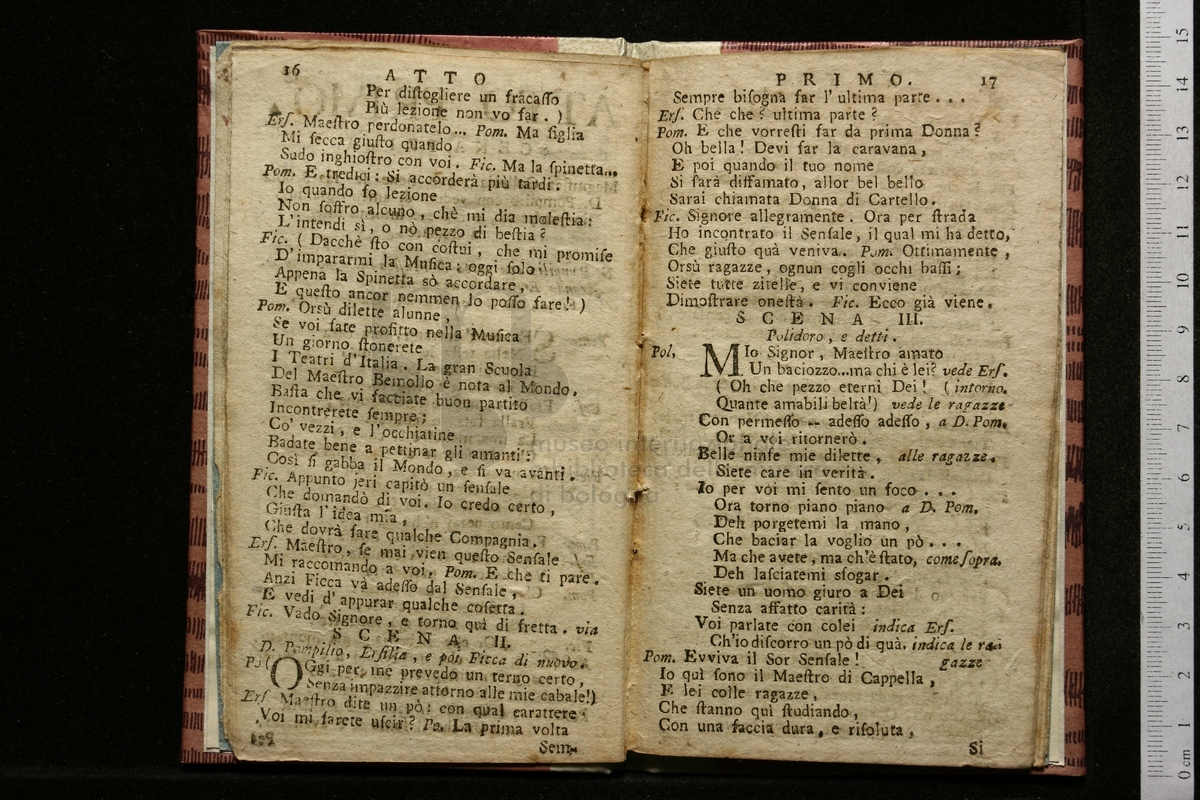 16
ATTO
Per distogliere un fracasso
Più lezione non vo far. )
Ers. Maestro perdonatelo... Pom. Ma figlia
Mi secca giusto quando
Sudo inghiostro con voi. Fic. Ma la spinetta...
Pom. E tredici: Si accorderà più tardi.
Io quando fo lezione
Non soffro alcuno, chè mi dia molestia:
L'intendi sì, o nò pezzo di bestia?
Fic. ( Dacchè sto con costui, che mi promise
D'impararmi la Musica: oggi solo
Appena la Spinetta sò accordare,
E questo ancor nemmen lo posso fare!)
Pom. Orsù dilette alunne,
Se voi fate profitto nella Musica
Un giorno stonerete
I Teatri d'Italia. La gran Scuola
Del Maestro Bemollo è nota al Mondo,
Basta che vi facciate buon partito
Incontrerete sempre;
Co' vezzi, e l'occhiatine
Badate bene a pettinar gli amanti:
Così si gabba il Mondo, e si va avanti.
Fic. Appunto jeri capitò un sensale
Che domandò di voi. Io credo certo,
Giusta l'idea mia,
Che dovrà fare qualche Compagnia.
Ers. Maestro, se mai vien questo Sensale
Mi raccomando a voi. Pom. E che ti pare.
Anzi Ficca và adesso dal Sensale,
E vedi d'appurar qualche cosetta.
Fic. Vado Signore, e torno quì di fretta. via
SCENA II.
D. Pompilio, Ersilia, e poi Ficca di nuovo.
Po. ( OGgi per me prevedo un terno certo,
Senza impazzire attorno alle mie cabale!)
Ers. Maestro dite un pò: con qual carattere
Voi mi farete uscir? Po. La prima volta
Sem-
PRIMO.
17
Sempre bisogna far l'ultima parte...
Ers. Che che? ultima parte?
Pom. E che vorresti far da prima Donna?
Oh bella! Devi far la caravana,
E poi quando il tuo nome
Si farà diffamato, allor bel bello
Sarai chiamata Donna di Cartello.
Fic. Signore allegramente. Ora per strada
Ho incontrato il Sensale, il qual mi ha detto,
Che giusto quà veniva. Pom. Ottimamente,
Orsù ragazze, ognun cogli occhi bassi;
Siete tutte zitelle, e vi conviene
Dimostrare onestà. Fic. Ecco già viene.
SCENA III.
Polidoro, e detti.
Pol, MIo Signor, Maestro amato
Un baciozzo...ma chi è lei? vede Ers.
( Oh che pezzo eterni Dei! ( intorno.
Quante amabili beltà!) vede le ragazze
Con permesso -- adesso adesso, a D. Pom.
Or a voi ritornerò.
Belle ninfe mie dilette, alle ragazze.
Siete care in verità.
Io per voi mi sento un foco...
Ora torno piano piano a D. Pom.
Deh porgetemi la mano,
Che baciar la voglio un pò...
Ma che avete, ma ch'è stato, come sopra.
Deh lasciatemi sfogar.
Siete un uomo giuro a Dei
Senza affatto carità:
Voi parlate con colei indica Ers.
Ch'io discorro un pò di quà. indica le ra-
Pom. Evviva il Sor Sensale! gazze
Io quì sono il Maestro di Cappella,
E lei colle ragazze,
Che stanno quì studiando,
Con una faccia dura, e risoluta,
Si
museo internazionale
biblioteca della musica
di bologna